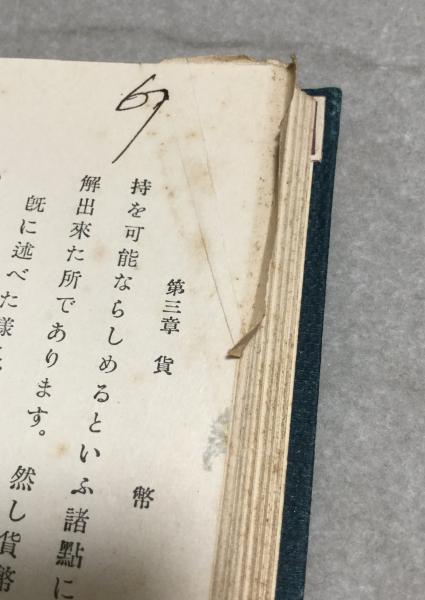 第三章 貨 幣
持を可能ならしめるといふ諸點に
解出來た所であります。 然し貨幣
既に述べた樣